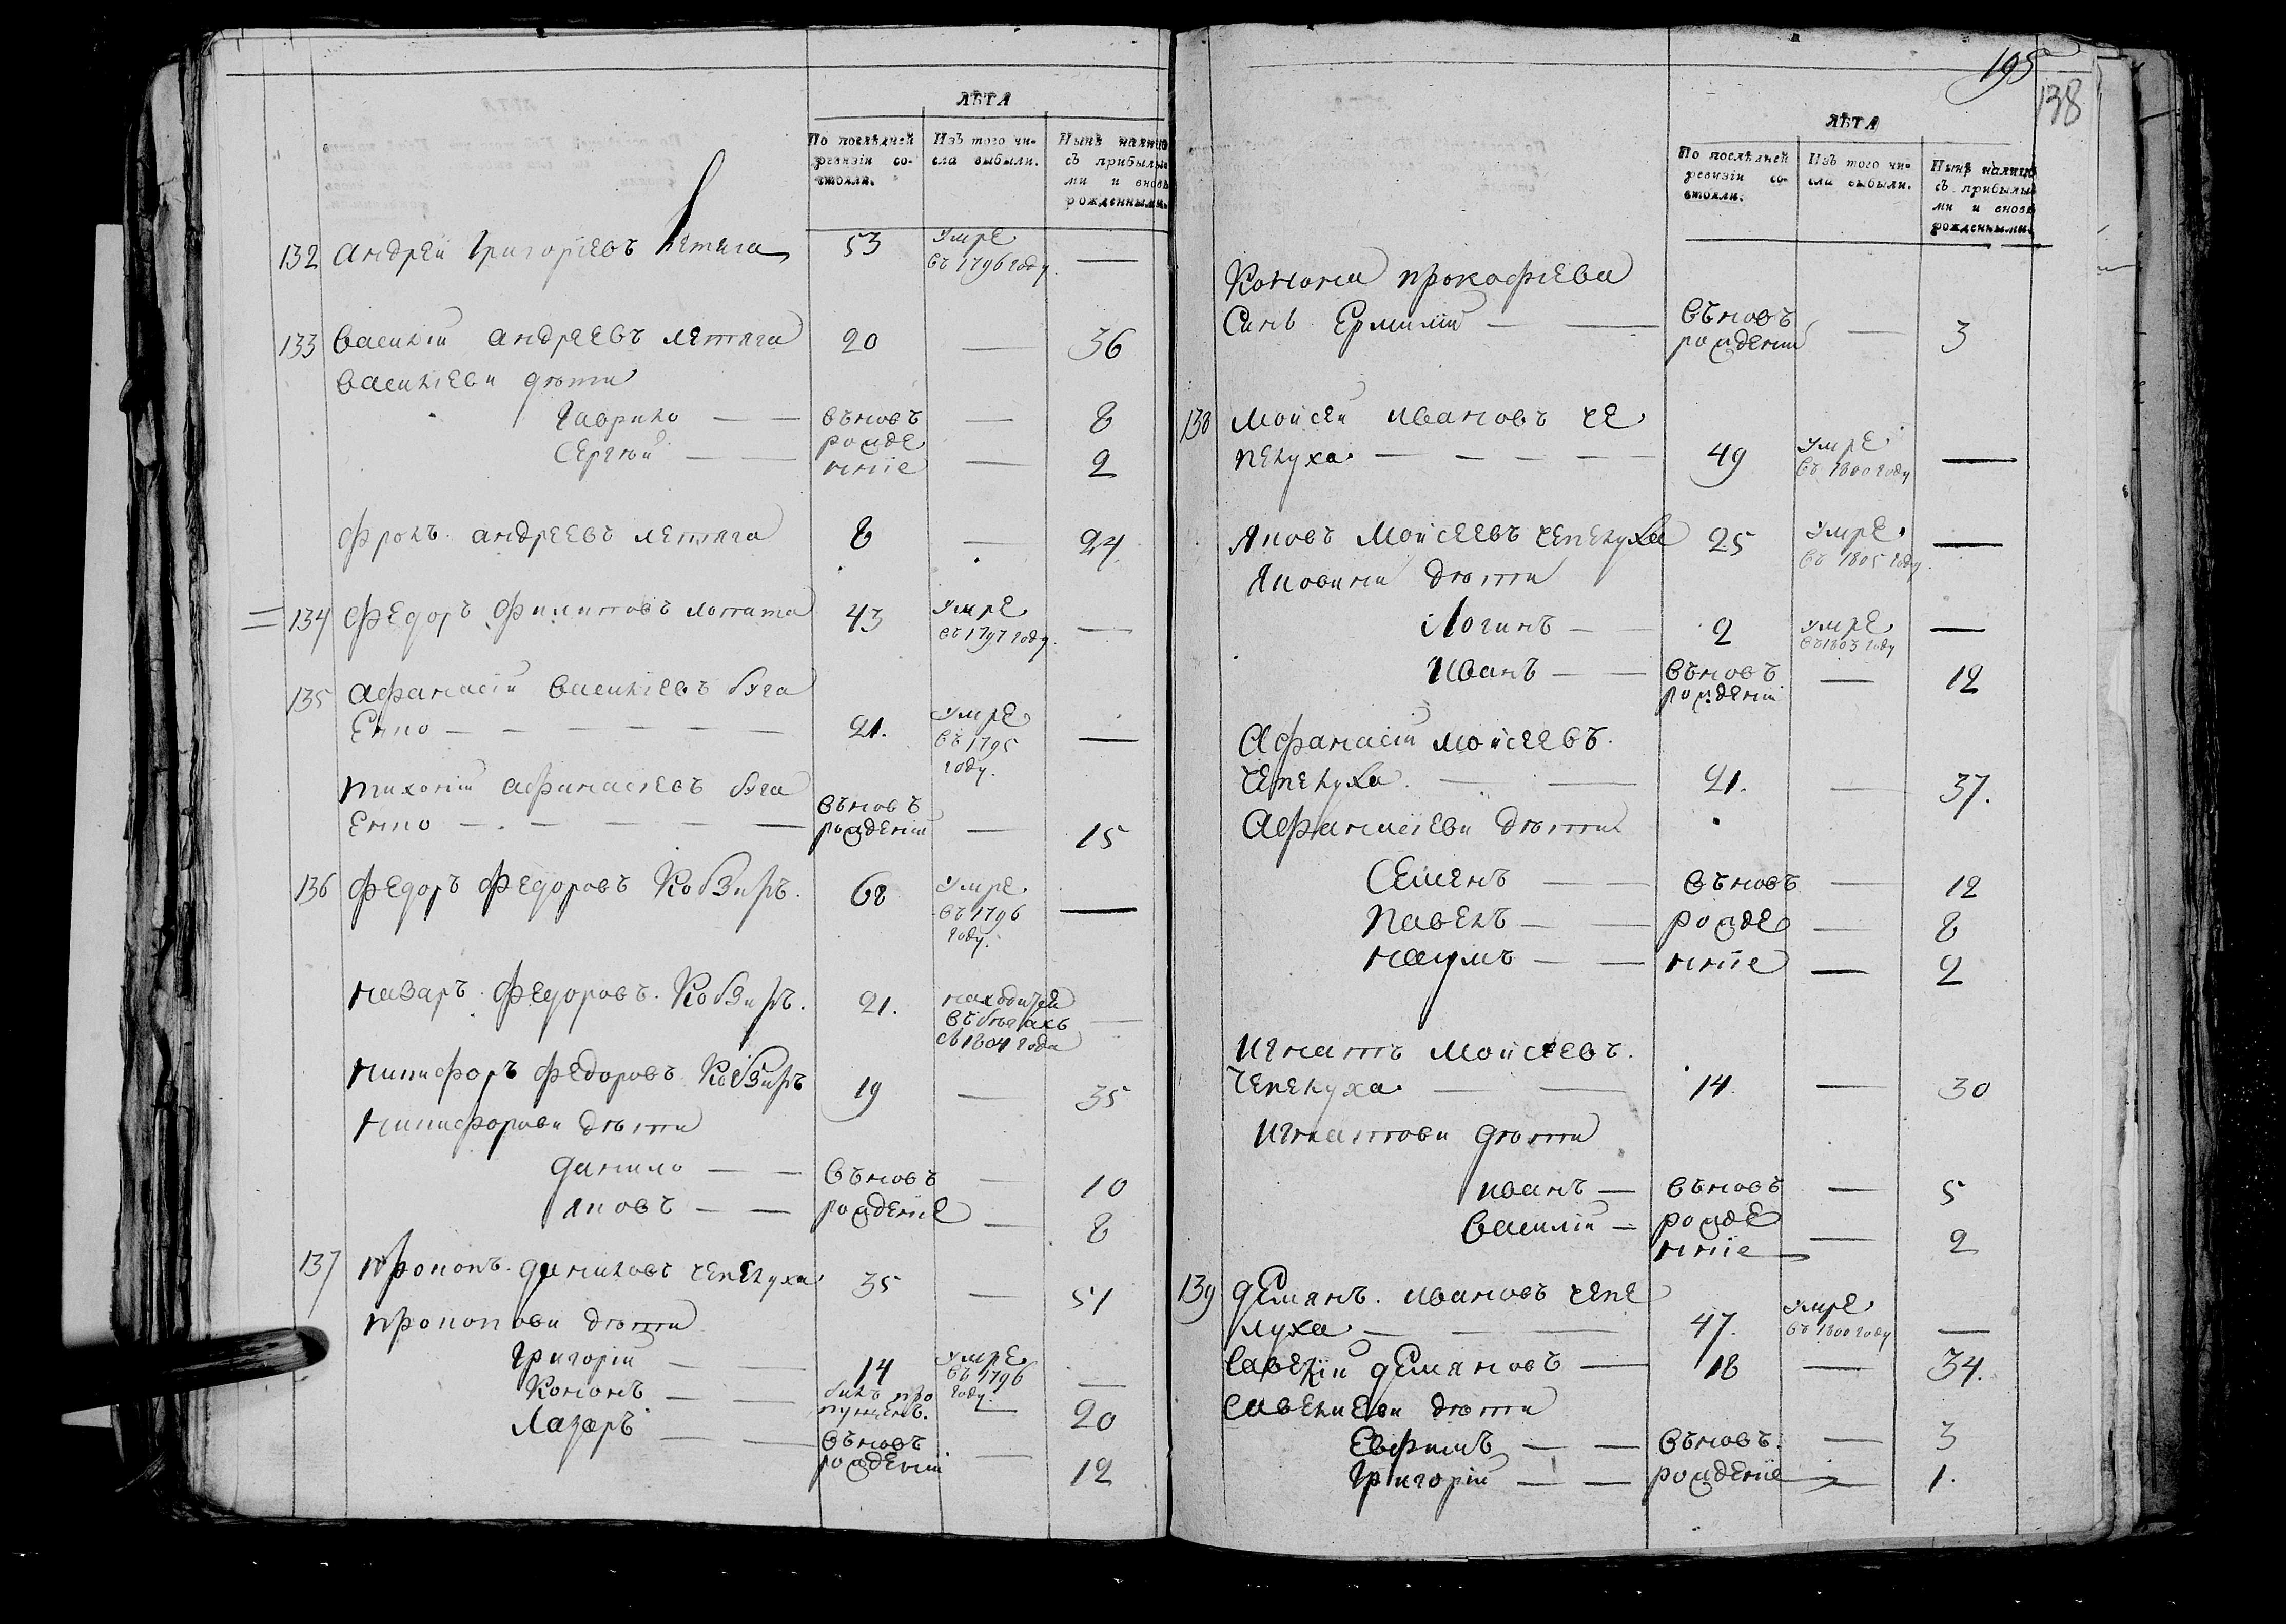 ЛѢТА
По послѣдней ревизіи со-
стояли.
Изъ того чи-
сла выбыли.
Нынѣ налицо
съ прибылы-
ми и вновь
рожденными.
132 Андрей Григоріевъ Летяга 53 умре
въ 1796 году. —
133 Василій Андреевъ Летяга 20 — 36
Василіеви дѣти
Гаврило — — въновъ — 8
Сергѣй — — рожде
нніе — 2
Фролъ Андреевъ Летяга 8 — 24.
134 Федоръ Филиповъ Лопата 43 умре
въ 1797 году. —
135 Афанасій Василіевъ Буга
Енко — — — — — — 21. умре
въ 1795
году. —
Тихоній Афанасіевъ Буга
Енко — — — — — — въновъ
рожденій — 15
136 Федоръ Федоровъ Кобзиръ. 68 умре
въ 1796
году. —
Назаръ Федоровъ Кобзиръ. 21. находится
въ бѣгахъ
съ 1804 года —
Никифоръ Федоровъ Кобзиръ 19 — 35
Никифорови дѣти
Данило — — въновъ — 10
Яковъ — — рожденіе — 8
137 Прокопъ Даниловъ Чепелуха 35 — 51
Прокопови дѣти
Григорій — — 14 умре
въ 1796
году. —
Кононъ — — билъ про
пущенъ. — 20
Лазаръ — — въновъ
рожденій — 12
195
138
ЛѢТА
По послѣдней
ревизіи со-
стояли.
Изъ того чи-
сла выбыли.
Нынѣ налицо
съ прибылы-
ми и вновь
рожденными.
Конона Прокофіева
Синъ Ермилій — — въновъ
рожденій — 3
138 Мойсей Ивановъ Че
пелуха — — — — — 49 умре
въ 1800 году —
Яковъ Мойсеевъ Чепелуха 25 умре
въ 1805 году —
Якови дѣти
Логинъ — — 2 умре
въ 1803 году —
Иванъ — — въновъ
рожденій — 12
Афанасій Мойсеевъ.
Чепелуха. — — 21. — 37.
Афанасіеви дѣти
Семенъ — — въновъ — 12
Павелъ — — рожде — 8
Наумъ — — нніе — 2
Игнатъ Мойсеевъ.
Чепелуха — — 14 — 30
Игнатови дѣти
Иванъ — въновъ — 5
Василій — рожде
нніе — 2
139 Демянъ. Ивановъ Чепе
луха — — — 47. умре
въ 1800 году —
Савелій Демяновъ — 18 — 34.
Савелиеви дѣти
Евфимъ — — въновъ. — 3
Григорій — — рожденіе — 1.